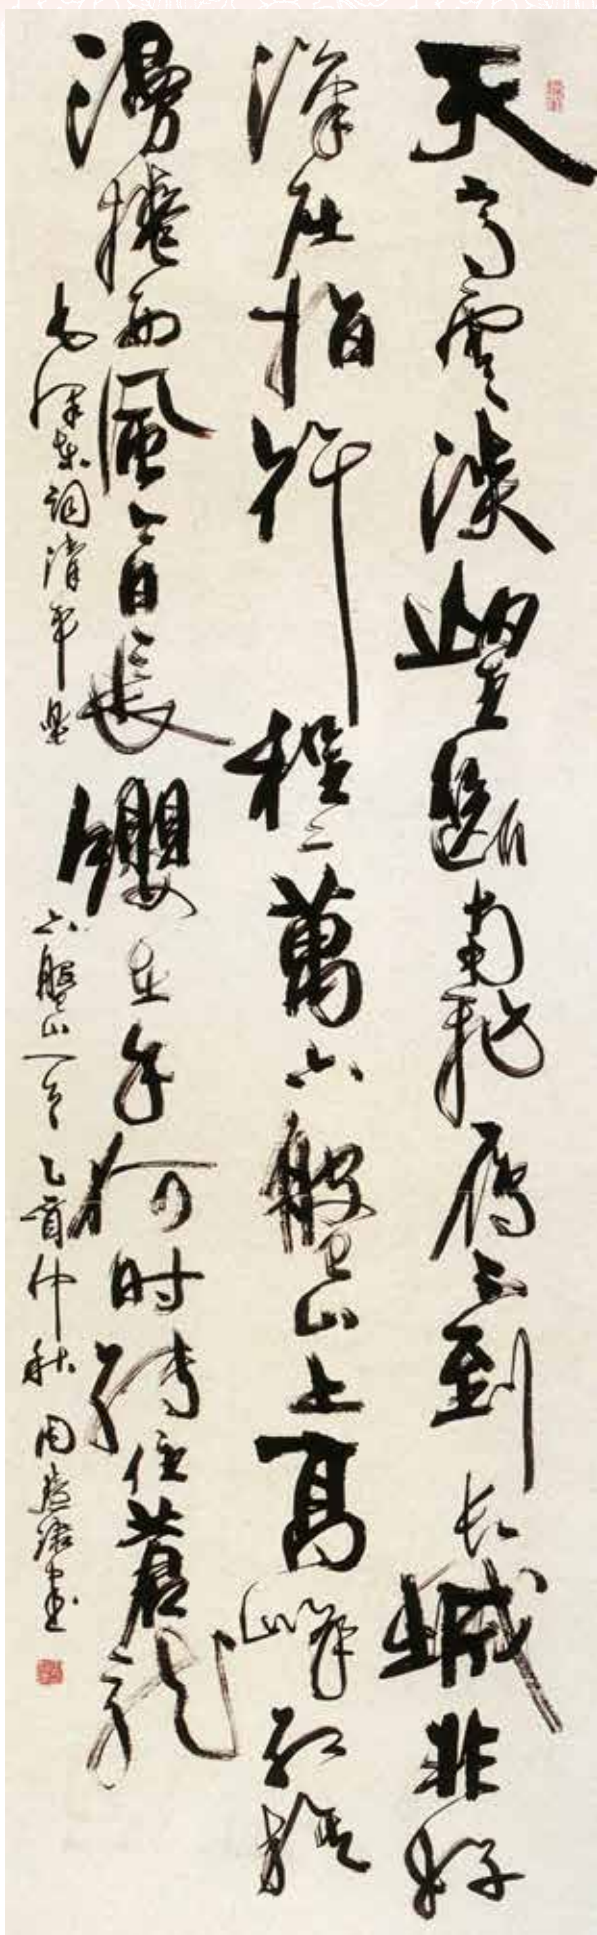 天高雲淡望斷南飛雁不到长城非好
漢屈指行程二萬六盤山上高峰紅旗
漫捲西風今日長纓在手何时縛住蒼龍
毛澤東詞清平樂六盤山一首乙酉仲秋周書